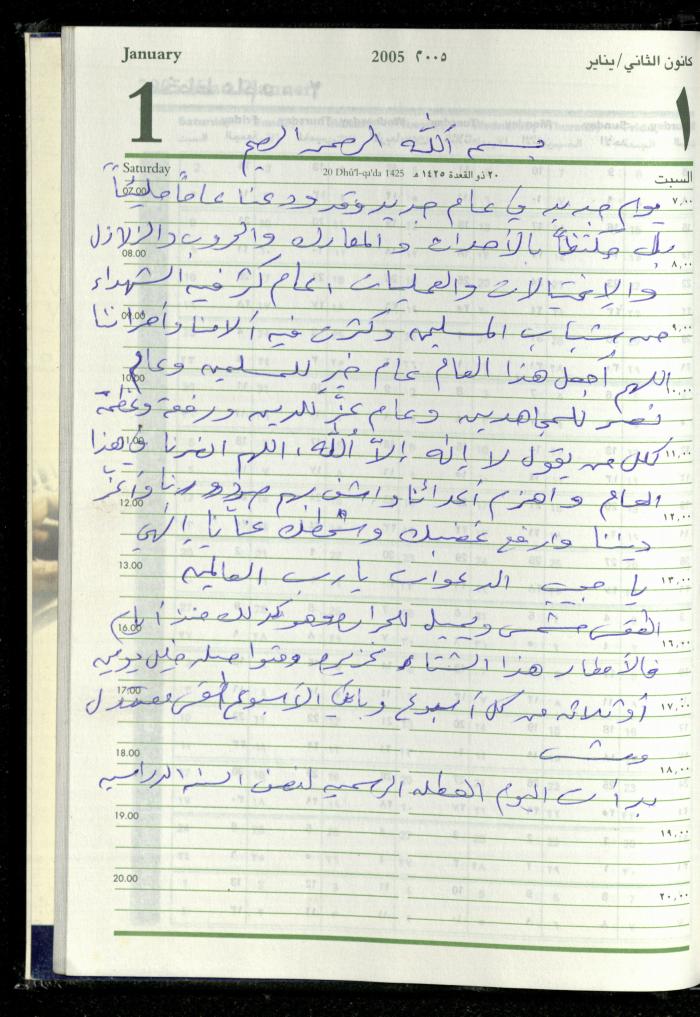 January 2005 ٢٠٠٥ كانون الثاني/يناير
1 ١
بسم اللّٰه الرحمن الرحيم
Saturday 20 Dhū'l-qa'da 1425 ٢٠ ذو القعدة ١٤٢٥ هـ السبت
07.00 يوم جديد في عام جديد وقد ودعنا عاماً مليئاً ٧,٠٠
بل مكتظاً بالأحداث والمعارك والحروب والزلازل
08.00 ٨,٠٠
والإغتيالات والعمليات عام كثر فيه الشهداء
09.00 من شباب المسلمين وكثرت فيه آلامنا وأحزاننا ٩,٠٠
اللهم أجعل هذا العام عام خير للمسلمين وعام
10.00 ١٠,٠٠
نصر للمجاهدين وعام عزٍّ للدين ورفعة وعظمة
11.00 لكل من يقول لا إله إلاّ اللّٰه، اللهم انصرنا في هذا ١١,٠٠
العام واهزم أعدائنا واشف بهم صدورنا وأعزّ
12.00 ١٢,٠٠
ديننا وارفع غضبك وسخطك عنّا يا إلهي
13.00 يا مجيب الدعوات يارب العالمين ١٣,٠٠
الطقس مشمس ويميل للحرارة وهو كذلك منذ أيام
16.00 ١٦,٠٠
فالأمطار هذا الشتاء غزيره ومتواصله خلال يومين
17.00 أو ثلاثه من كل أسبوع وباقي الأسبوع الطقس معتدل ١٧,٠٠
ومشمس
18.00 ١٨,٠٠
بدأت اليوم العطله الرسميه لنصف السنه الدراسيه
19.00 ١٩,٠٠
20.00 ٢٠,٠٠